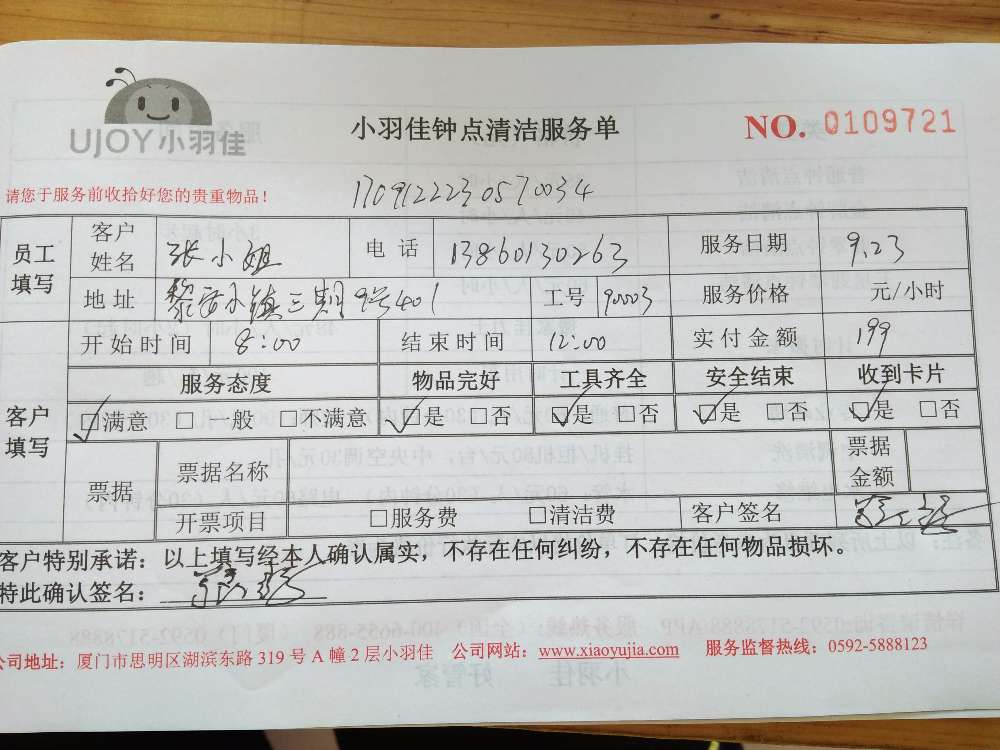 UJOY小羽佳
小羽佳钟点清洁服务单
NO. 0109721
请您于服务前收拾好您的贵重物品！
1709122230570034
员工填写 客户姓名 张小姐 电话 13860130263 服务日期 9.23
地址 小镇三期9号401 工号 90003 服务价格 元/小时
客户填写 开始时间 8:00 结束时间 12:00 实付金额 199
服务态度 物品完好 工具齐全 安全结束 收到卡片
☑满意 □一般 □不满意 ☑是 □否 ☑是 □否 ☑是 □否 ☑是 □否
票据 票据名称 票据金额
开票项目 □服务费 □清洁费 客户签名
客户特别承诺：以上填写经本人确认属实，不存在任何纠纷，不存在任何物品损坏。
特此确认签名：
公司地址：厦门市思明区湖滨东路 319 号 A 幢 2 层小羽佳 公司网站：www.xiaoyujia.com 服务监督热线：0592-5888123